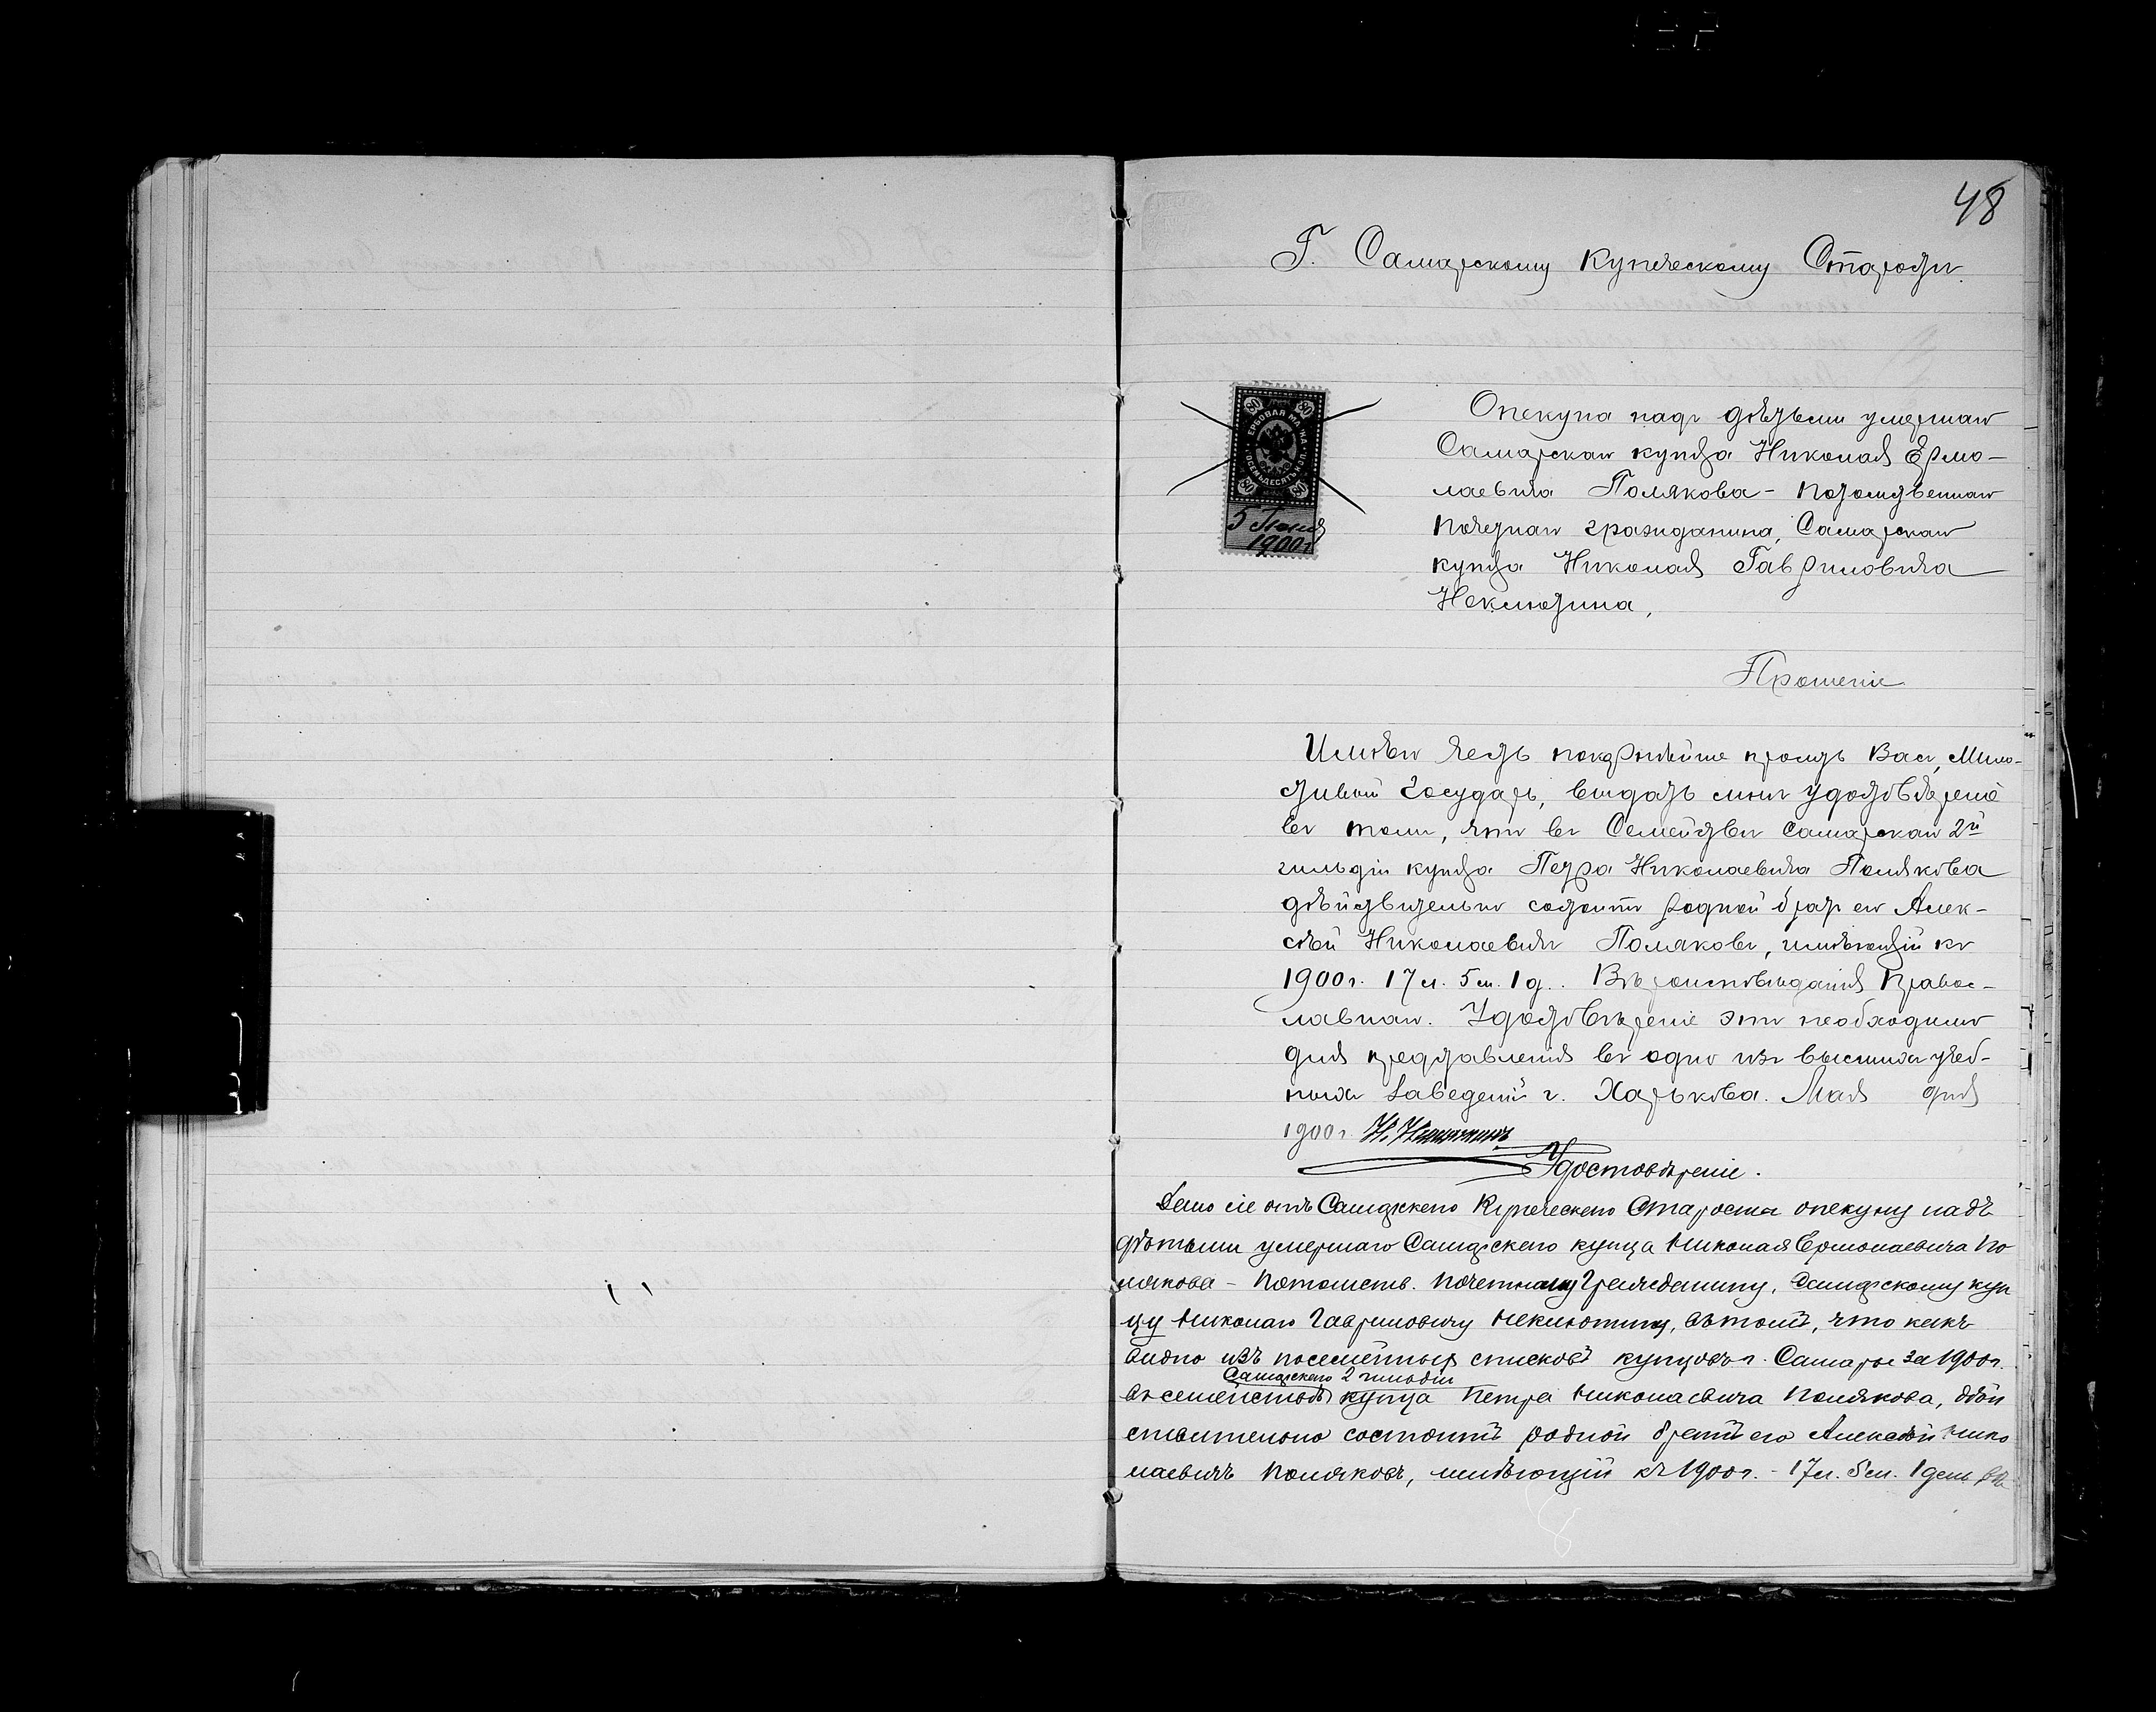 48
Г. Самарскому Купеческому Старостѣ.
Опекуна надъ дѣтьми умершаго
Самарскаго купца Николая Ермо-
лаевича Полякова - Потомственнаго
Почетнаго гражданина, Самарскаго
купца Николая Гавриловича
Неклютина,
ГЕРБОВАЯ МАРКА
ВОСЕМЬДЕСЯТЪ КОП.
80 80
80 80
5 Іюня
1900 г
Прошеніе
Имѣю честь покорнѣйше просить Васъ, Мило-
стивый Государь, выдать мнѣ удостовѣреніе
въ томъ, что въ Семействѣ Самарскаго 2й
гильдіи купца Петра Николаевича Полякова
дѣйствительно состоитъ родной братъ его Алек-
сѣй Николаевичъ Поляковъ, имѣющій къ
1900 г. 17 л. 5 м. 1 д. Вѣроисповѣданія Правос-
лавнаго. Удостовѣреніе это необходимо
для представленія въ одно изъ высшихъ учеб-
ныхъ заведеній г. Харькова. Мая дня
1900 г. Н. Неклютинъ
Удостовѣреніе.
Дано сіе отъ Самарскаго Купеческаго Старосты опекуну надъ
дѣтьми умершаго Самарскаго купца Николая Ермолаевича По
лякова - Потомств. Почетному Гражданину, Самарскому куп
цу Николаю Гавриловичу Неклютину, въ томъ, что какъ
видно изъ посемейныхъ списковъ купцовъ г. Самары за 1900 г.
Самарскаго 2 гильдіи
въ семействѣ купца Петра Николаевича Полякова, дѣй
ствительно состоитъ родной братъ его Алексѣй Нико
лаевичъ Поляковъ, имѣющій къ 1900 г. - 17 л. 5 м. 1 день